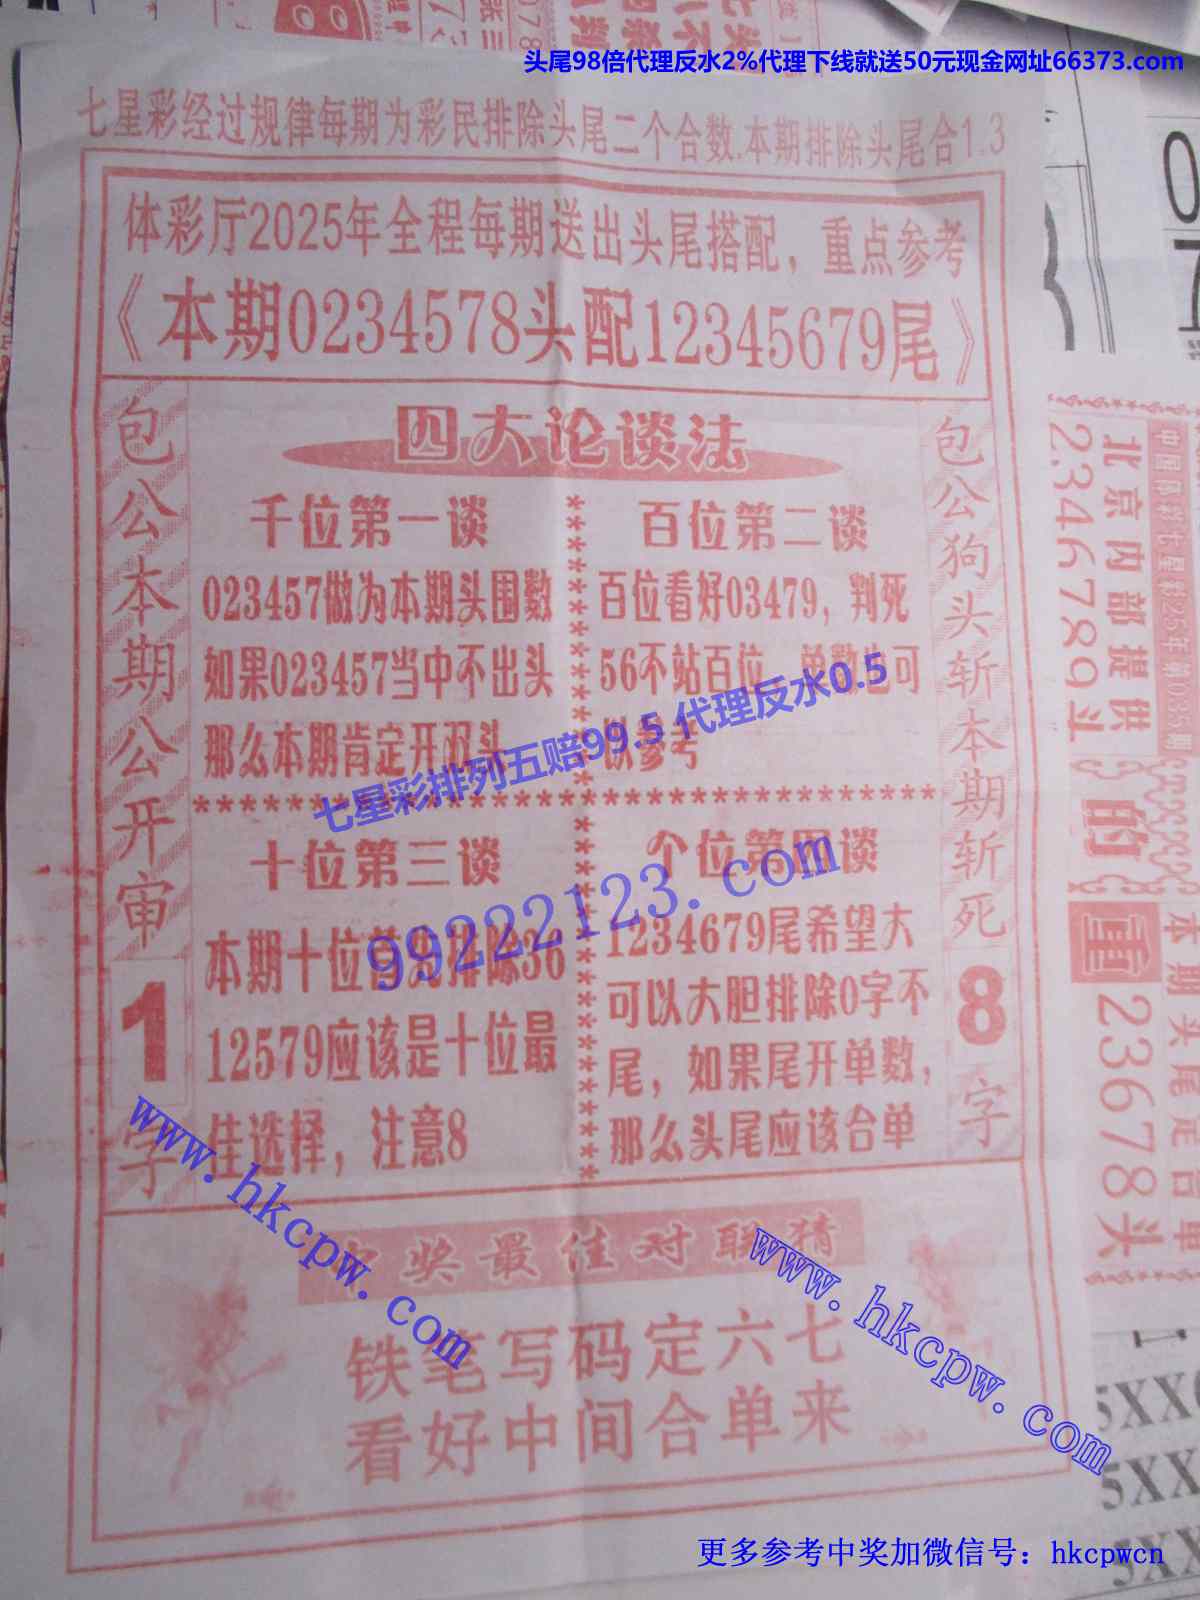 头尾98倍代理反水2%代理下线就送50元现金网址66373.com
七星彩经过规律每期为彩民排除头尾二个合数.本期排除头尾合1.3
体彩厅2025年全程每期送出头尾搭配，重点参考
《本期0234578头配12345679尾》
包公本期公开审
1
字
四大论谈法
千位第一谈
023457做为本期头围数
如果023457当中不出头
那么本期肯定开双头
百位第二谈
百位看好03479，判死
56不站百位，单数也可
以参考
七星彩排列五赔99.5 代理反水0.5
99222123.com
十位第三谈
本期十位首先排除36
12579应该是十位最
佳选择，注意8
个位第四谈
1234679尾希望大
可以大胆排除0字不
尾，如果尾开单数，
那么头尾应该合单
包公狗头斩本期斩死
8
字
www.hkcpw.com
www.hkcpw.com
奖最佳对联猜
铁笔写码定六七
看好中间合单来
北京内部提供
2346789斗
的
重
23678头
本期头尾合单
5XX
5XX
5XX
更多参考中奖加微信号：hkcpwcn